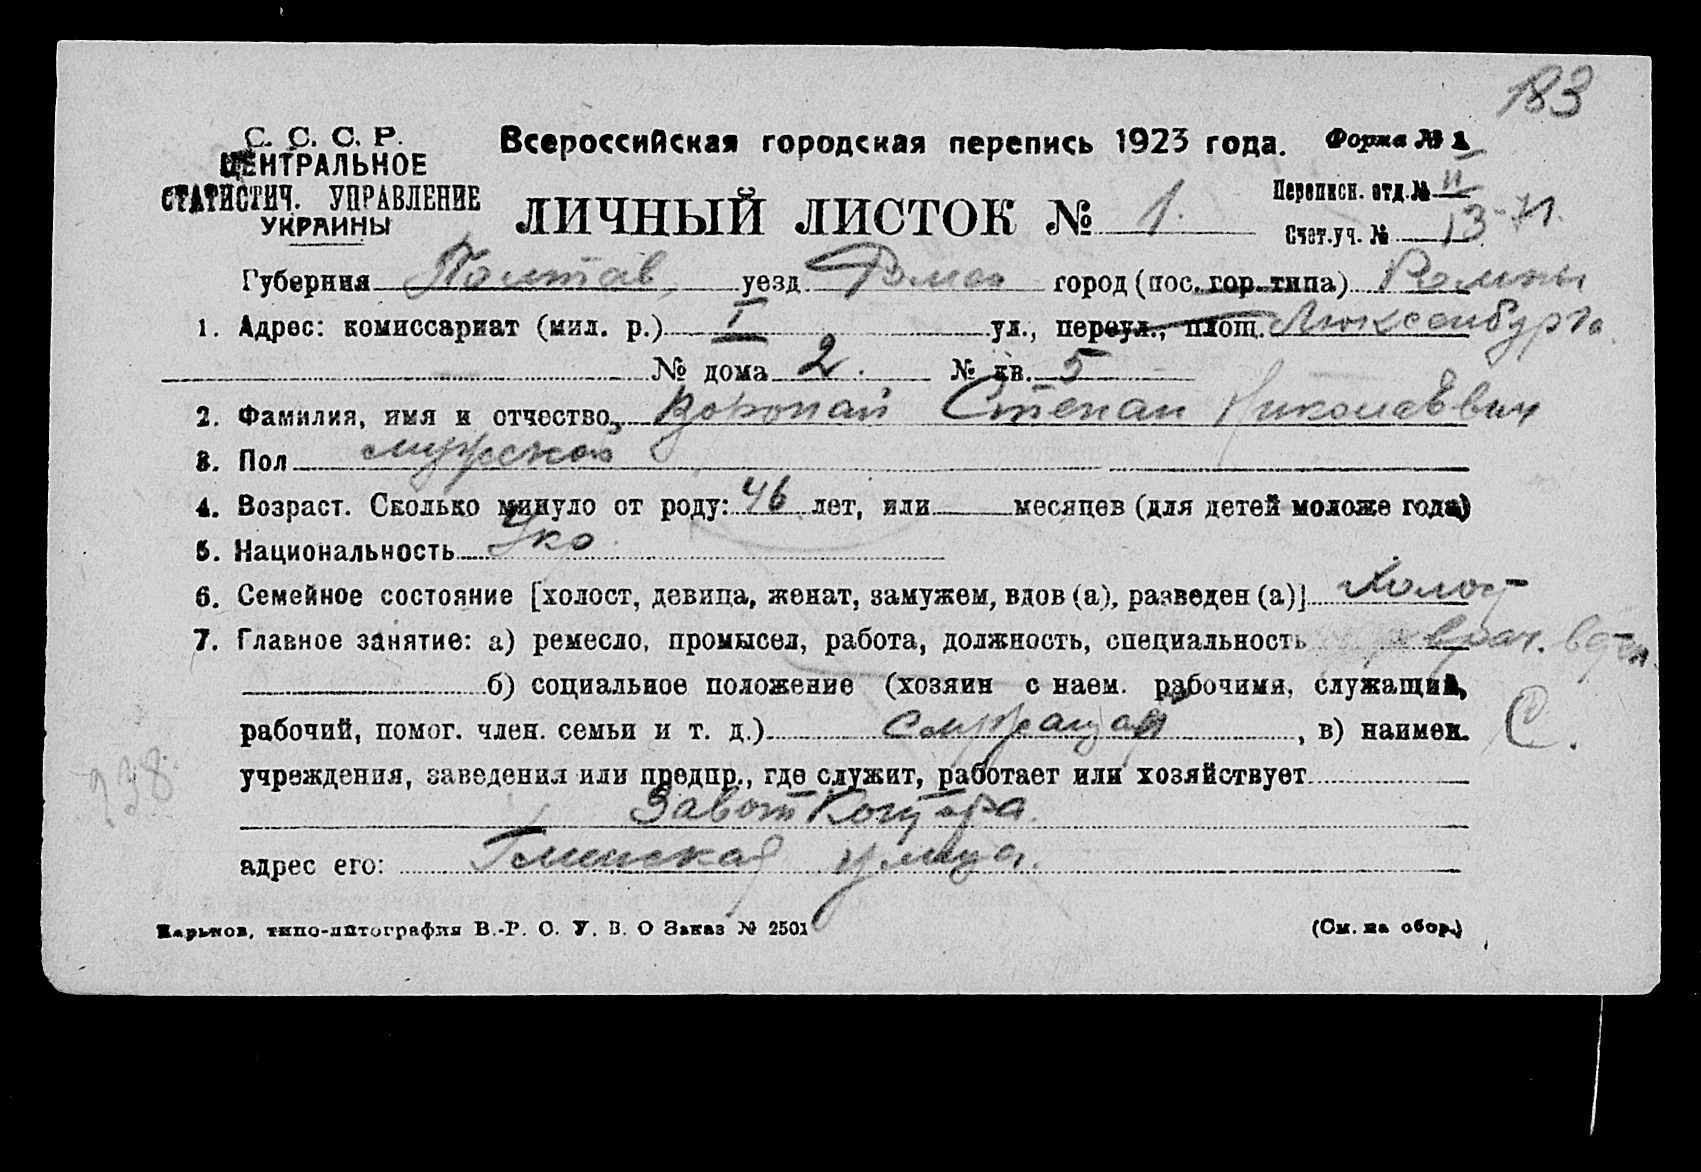 183
С. С. С. Р.
ЦЕНТРАЛЬНОЕ
СТАТИСТИЧ. УПРАВЛЕНИЕ
УКРАИНЫ
Всероссийская городская перепись 1923 года. Форма № 1
ЛИЧНЫЙ ЛИСТОК № 1.
Переписн. отд. № II
Счет. уч. № 13
Губерния Полтав. уезд Ромен город (пос. гор. типа) Ромны
1. Адрес: комиссариат (мил. р.) I ул., переул., площ. Люксенбурга.
№ дома 2. № кв. 5
2. Фамилия, имя и отчество Воропай Степан Николаевич
3. Пол мужской
4. Возраст. Сколько минуло от роду: 46 лет, или месяцев (для детей моложе года)
5. Национальность Укр.
6. Семейное состояние [холост, девица, женат, замужем, вдов (а), разведен (а)] Холост
7. Главное занятие: а) ремесло, промысел, работа, должность, специальность врач.
б) социальное положение (хозяин с наем. рабочими, служащий,
рабочий, помог. член. семьи и т. д.) служащий, в) наимен. С.
учреждения, заведения или предпр., где служит, работает или хозяйствует
238
адрес его: улица.
Харьков, типо-литография В.-Р. О. У. В. О Заказ № 2501
(См. на обор.)